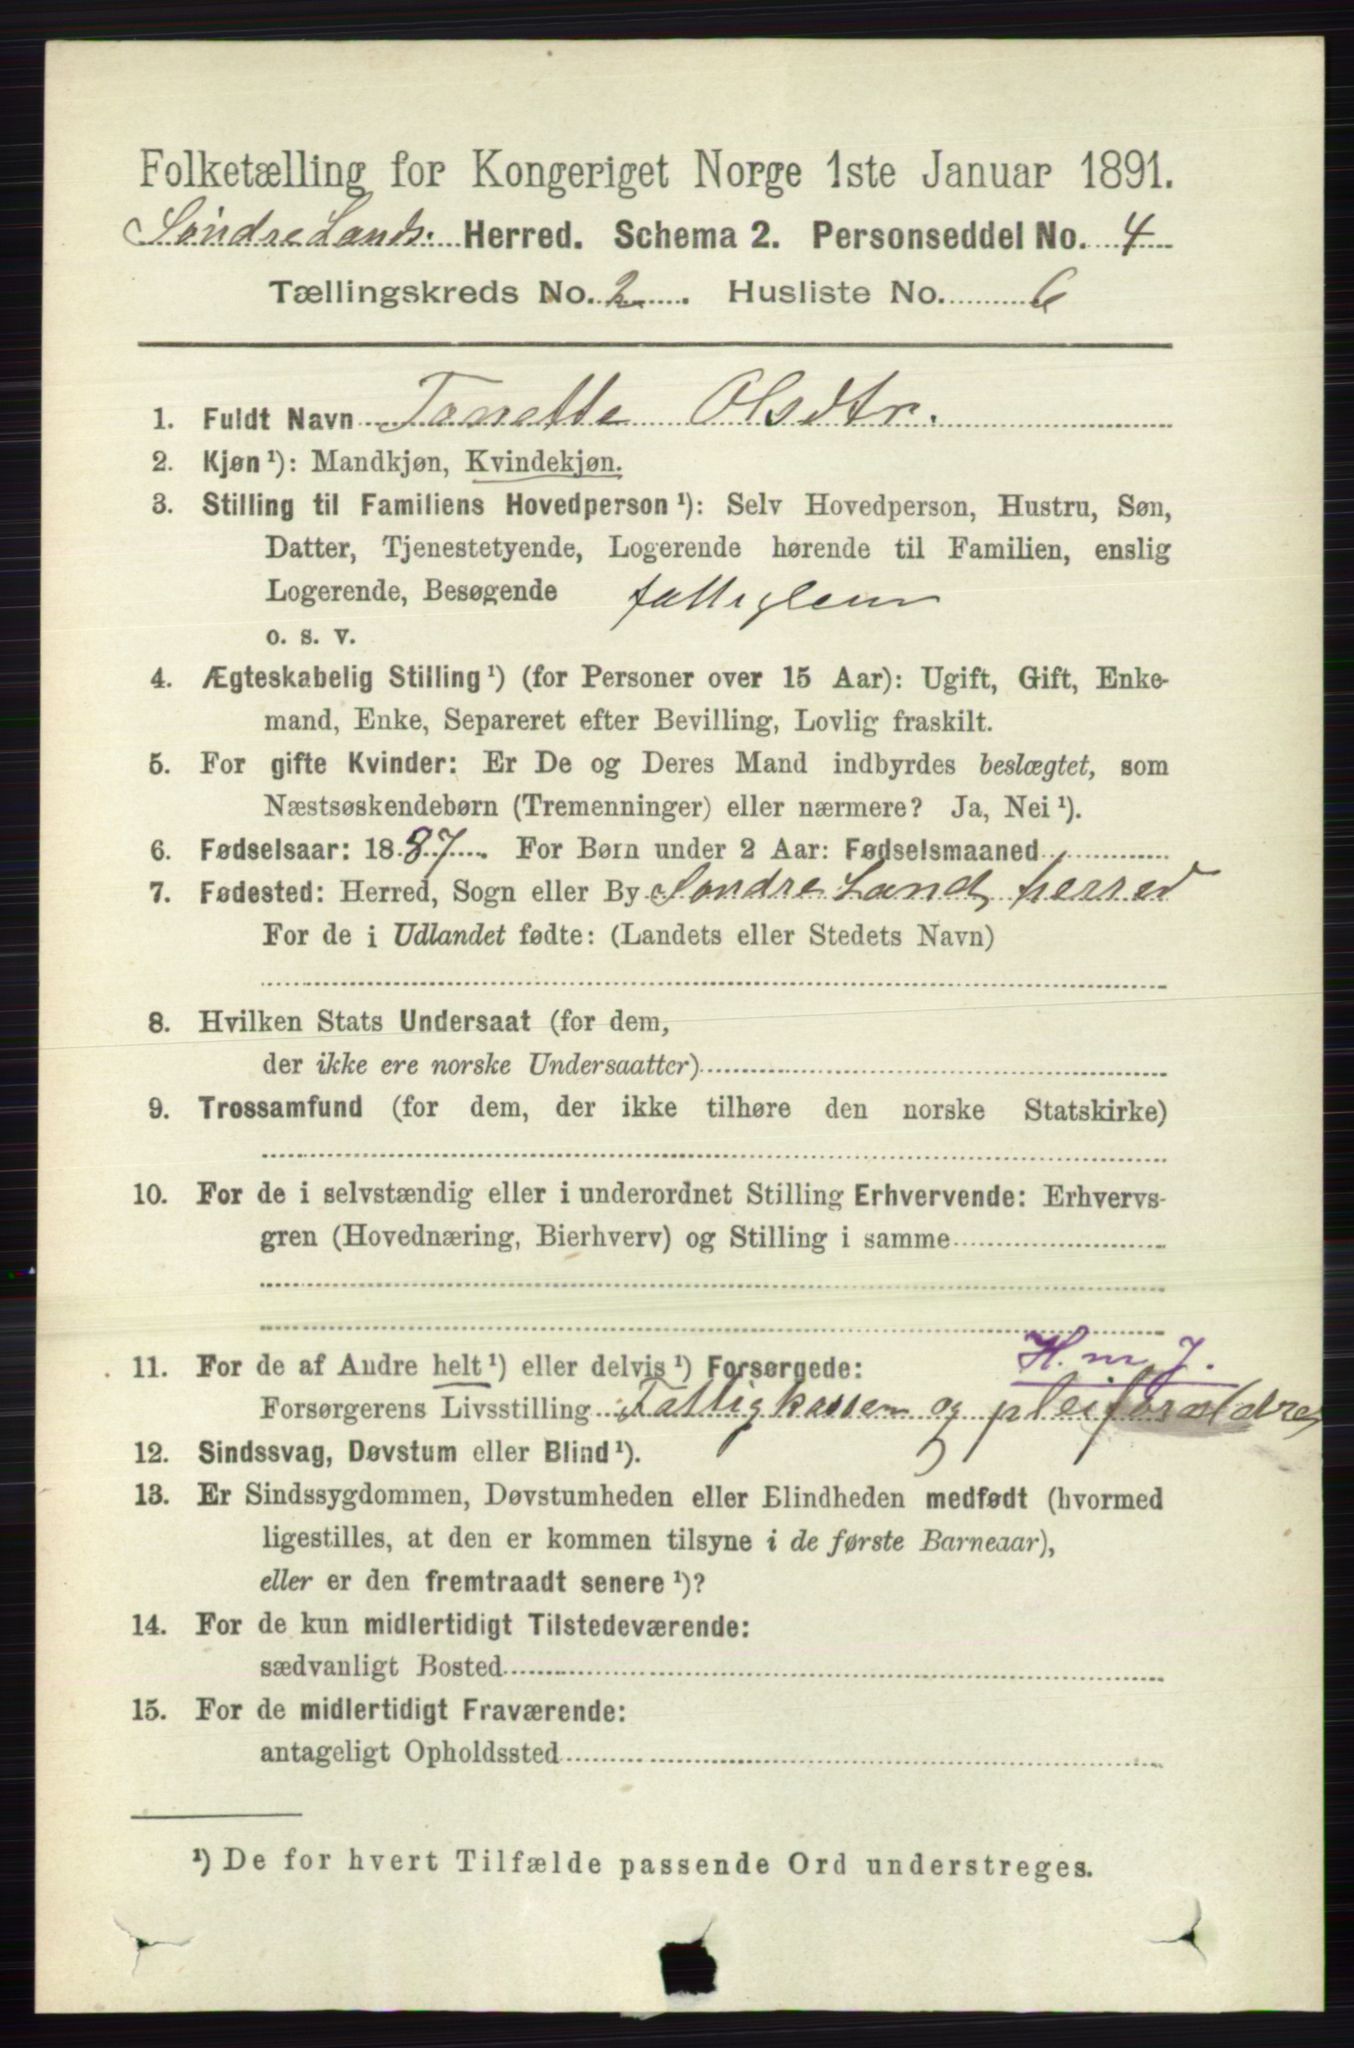 Folketælling for Kongeriget Norge 1ste Januar 1891.
Søndre Lands Herred. Schema 2. Personseddel No. 4
Tællingskreds No. 2. Husliste No. 6
1. Fuldt Navn Tonette Olsdtr.
2. Kjøn¹): Mandkjøn, Kvindekjøn.
3. Stilling til Familiens Hovedperson¹): Selv Hovedperson, Hustru, Søn,
Datter, Tjenestetyende, Logerende hørende til Familien, enslig
Logerende, Besøgende fattiglem
o. s. v.
4. Ægteskabelig Stilling¹) (for Personer over 15 Aar): Ugift, Gift, Enke-
mand, Enke, Separeret efter Bevilling, Lovlig fraskilt.
5. For gifte Kvinder: Er De og Deres Mand indbyrdes beslægtet, som
Næstsøskendebørn (Tremenninger) eller nærmere? Ja, Nei¹).
6. Fødselsaar: 1887. For Børn under 2 Aar: Fødselsmaaned
7. Fødested: Herred, Sogn eller By Søndre Land herred
For de i Udlandet fødte: (Landets eller Stedets Navn)
8. Hvilken Stats Undersaat (for dem,
der ikke ere norske Undersaatter)
9. Trossamfund (for dem, der ikke tilhøre den norske Statskirke)
10. For de i selvstændig eller i underordnet Stilling Erhvervende: Erhvervs-
gren (Hovednæring, Bierhverv) og Stilling i samme
H. nr 7.
11. For de af Andre helt¹) eller delvis¹) Forsørgede:
Forsørgerens Livsstilling Fattigkassen og pleiforældres
12. Sindssvag, Døvstum eller Blind¹).
13. Er Sindssygdommen, Døvstumheden eller Blindheden medfødt (hvormed
ligestilles, at den er kommen tilsyne i de første Barneaar),
eller er den fremtraadt senere¹)?
14. For de kun midlertidigt Tilstedeværende:
sædvanligt Bosted
15. For de midlertidigt Fraværende:
antageligt Opholdssted
¹) De for hvert Tilfælde passende Ord understreges.